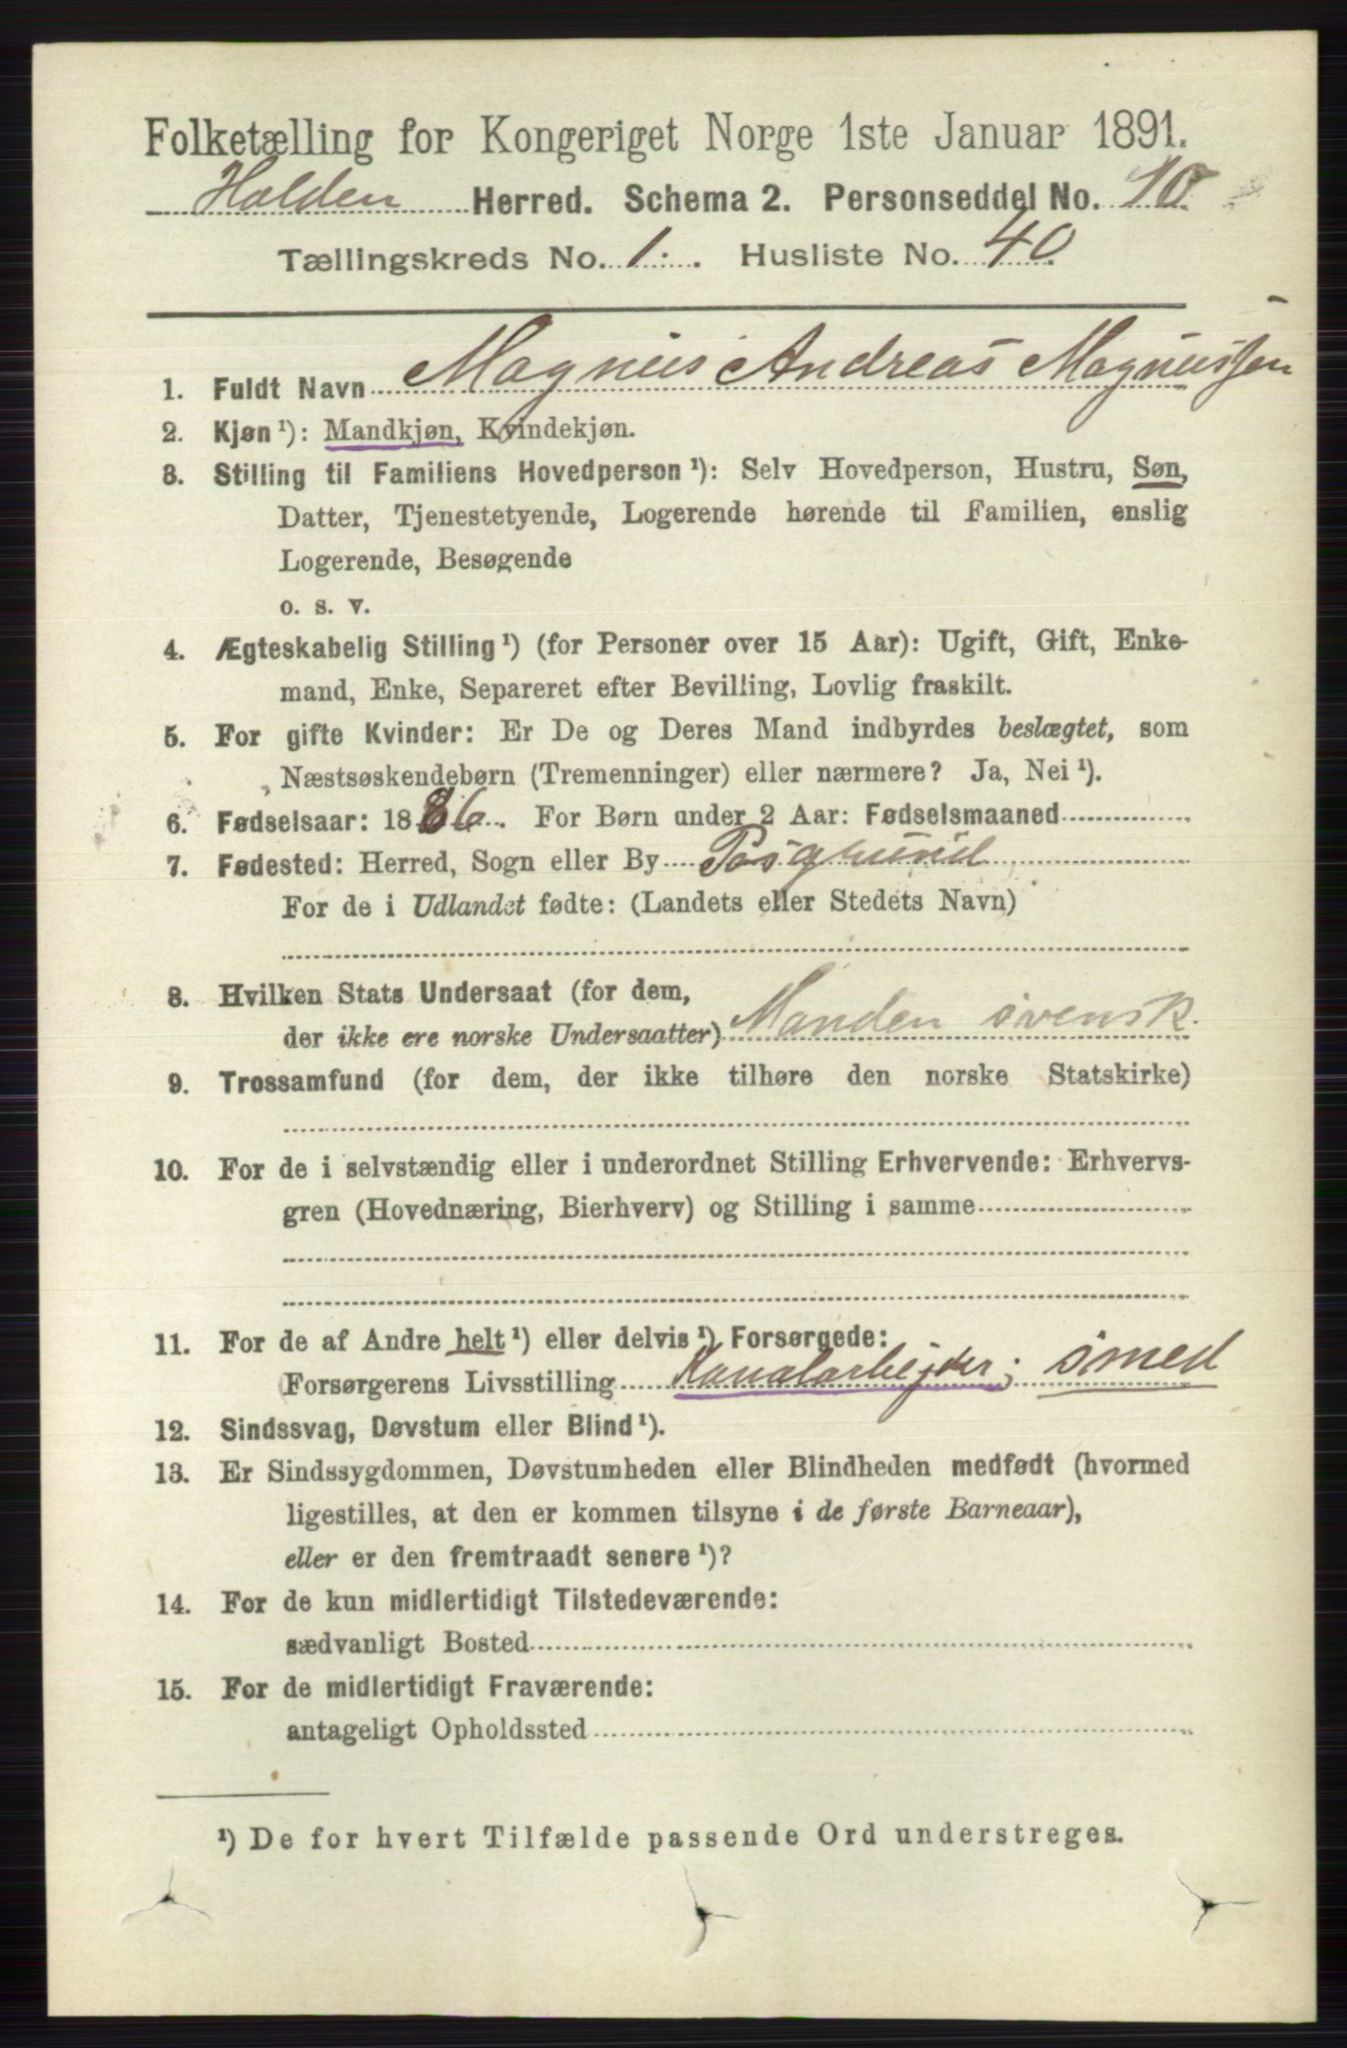 Folketælling for Kongeriget Norge 1ste Januar 1891.
Holden Herred. Schema 2. Personseddel No. 10.
Tællingskreds No. 1. Husliste No. 40.
1. Fuldt Navn Magnus Andreas Magnussen
2. Kjøn¹): Mandkjøn, Kvindekjøn.
3. Stilling til Familiens Hovedperson¹): Selv Hovedperson, Hustru, Søn,
Datter, Tjenestetyende, Logerende hørende til Familien, enslig
Logerende, Besøgende
o. s. v.
4. Ægteskabelig Stilling¹) (for Personer over 15 Aar): Ugift, Gift, Enke-
mand, Enke, Separeret efter Bevilling, Lovlig fraskilt.
5. For gifte Kvinder: Er De og Deres Mand indbyrdes beslægtet, som
Næstsøskendebørn (Tremenninger) eller nærmere? Ja, Nei¹).
6. Fødselsaar: 1886. For Børn under 2 Aar: Fødselsmaaned
7. Fødested: Herred, Sogn eller By Posgrund
For de i Udlandet fødte: (Landets eller Stedets Navn)
8. Hvilken Stats Undersaat (for dem,
der ikke ere norske Undersaatter) Manden svensk.
9. Trossamfund (for dem, der ikke tilhøre den norske Statskirke)
10. For de i selvstændig eller i underordnet Stilling Erhvervende: Erhvervs-
gren (Hovednæring, Bierhverv) og Stilling i samme
11. For de af Andre helt¹) eller delvis¹) Forsørgede:
Forsørgerens Livsstilling Kanalarbejder; smed
12. Sindssvag, Døvstum eller Blind¹).
13. Er Sindssygdommen, Døvstumheden eller Blindheden medfødt (hvormed
ligestilles, at den er kommen tilsyne i de første Barneaar),
eller er den fremtraadt senere¹)?
14. For de kun midlertidigt Tilstedeværende:
sædvanligt Bosted
15. For de midlertidigt Fraværende:
antageligt Opholdssted
¹) De for hvert Tilfælde passende Ord understreges.